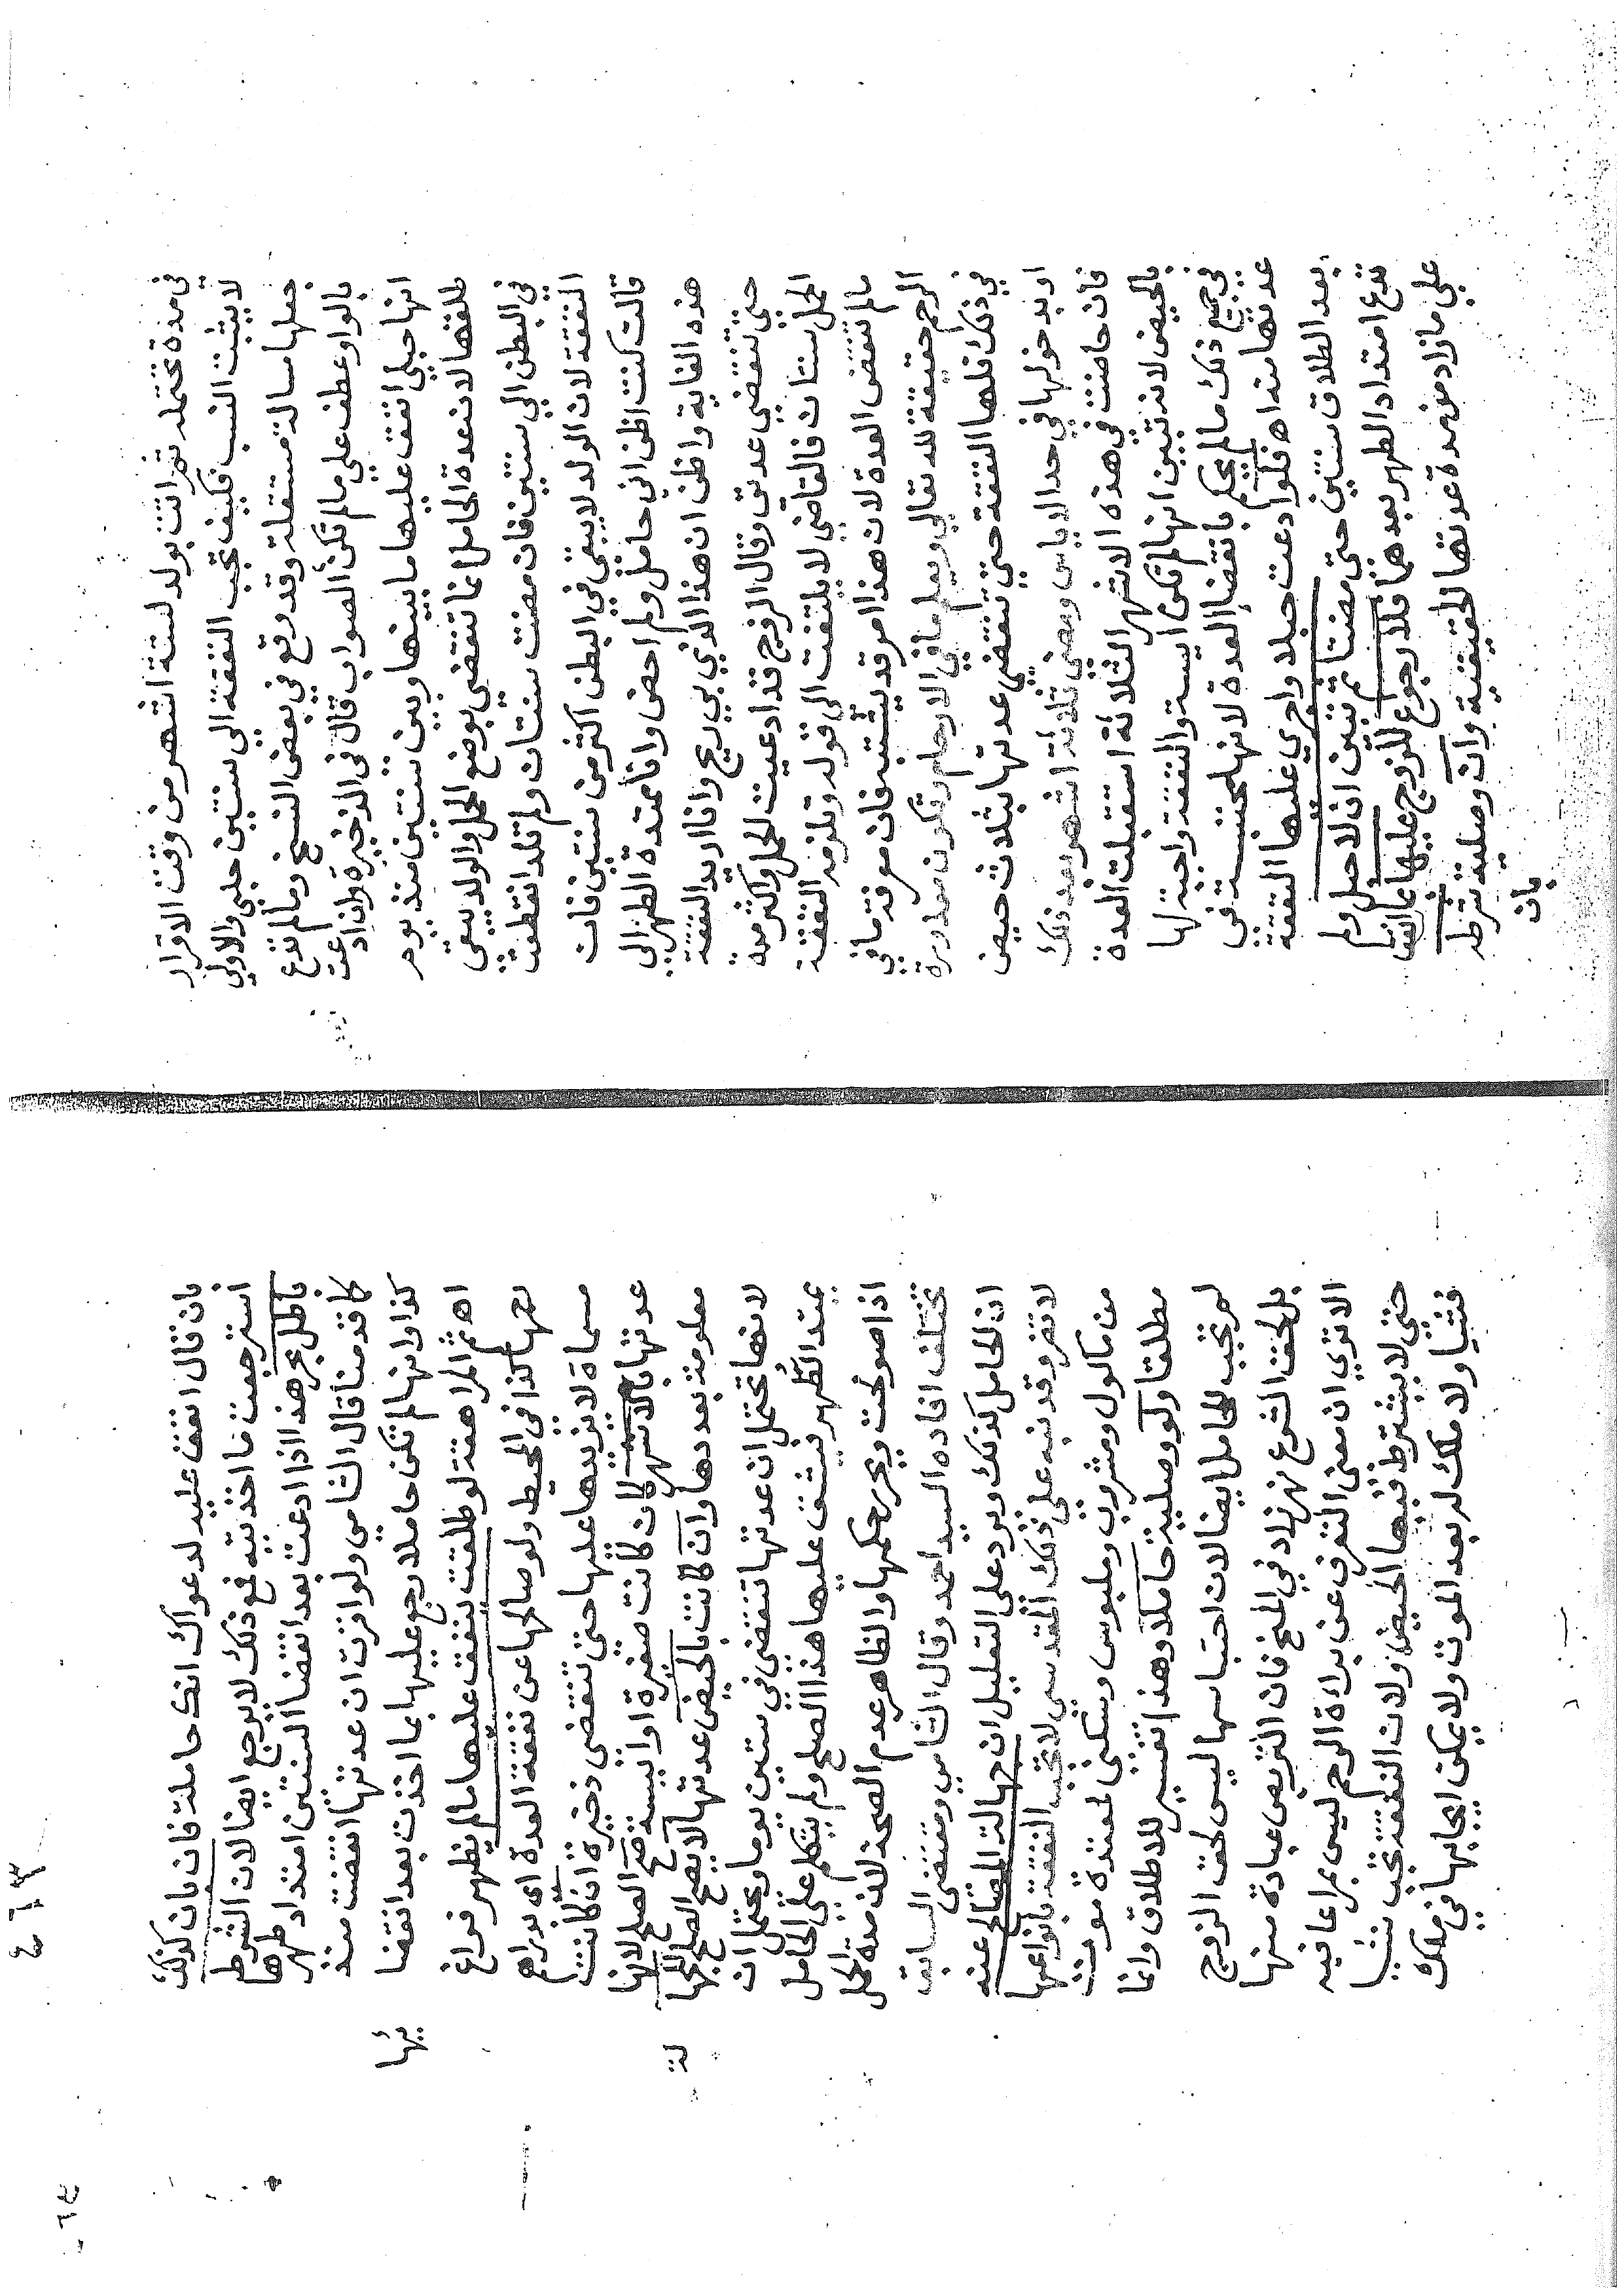 في مدة تحتمله ثم اتت بولد لستة اشهر من وقت الاقرار
لا يثبت النسب فكيف تجب النفقة الي سنتين حلبي والاولي
جعلها مسالة مستقلة وقد وقع في بعض النسخ ومالم تدع
بالواو عطف علي مالم تكن الصواب قال في الذخيرة وان ادعت
انها حبلي انفق عليها ما بينها وبين سنتين منذ يوم
طلقها لان عدة الحامل انما تنقضي بوضع الحمل والولد يبقي
في البطن الي سنتين فان مضت سنتان ولم تلد انقطعت
النفقة لان الولد لا يبقي في البطن اكثر من سنتين فان
قالت كنت اظن اني حامل ولم احض وانا ممتدة الطهر الي
هذه الغاية واظن ان هذا الذي بي ريح وانا اريد النفقة
حتي تنقضي عدتي وقال الزوج قد ادعيت الحمل واكثر مدة
الحمل سنتان فالقاضي لا يلتفت الي قوله وتلزمه النفقة
مالم تنقض العدة لان هذا امر قد يشتبه فان معرفة ما في
الرحم حقيقة لله تعالي ويعلم ما في الارحام وتكون معذورة
في ذلك فلها النفقة حتي تنقضي عدتها بثلاث حيض
او بدخولها في حد الاياس ومضي ثلاثة اشهر بعد ذلك
فان حاضت في هذه الاشهر الثلاثة استقبلت العدة
بالحيض لانه تبين انها لم تكن ايسة والنفقة واجبة لها
في جميع ذلك مالم يحكم بانقضا العدة لانها محتبسة في
عدتها منه اه فلو ادعت حبلا واجري عليها النفقة
بعد الطلاق سنتين حتي مضتا ثم تبين ان لا حبل ولم
تدع امتداد الطهر بعدهما فلا رجوع للزوج عليها بما انفق
علي ما زاد من مدة عدتها الحقيقية وان وصلية شرطه
بان
٤٦٣
بان قال انفق عليه لدعواك انك حاملة فان بان كذلك
استرجعت ما اخذتيه فمع ذلك لا يرجع ايضا لان الشرط
باطل بحر هذا اذا ادعت بعد انقضا السنتين امتداد طهرها
كما قدمنا قال الشامي ولو اقرت ان عدتها انقضت منذ
كذا وانها لم تكن حاملا رجع عليها بما اخذت بعد انقضا
ئها
اه ثم المراهقة لو طلقت ينفق عليها مالم يظهر فراغ
رحمها كذا في المحيط ولو صالحها عن نفقة العدة اي بدراهم
مسماة لا يزيدها عليها حتي تنقضي ذخيرة ان كانت
عدتها بالاشهر كان كانت صغيرة او ايسة صح الصلح لانها
معلومة بعددها وان كانت بالحيض عدتها لا يصح الصلح للجها
لة
لانها تحتمل ان عدتها تنقضي في ستين يوما ويحتمل ان
يمتد الطهر فيشق عليها هذا الصلح ولم يتكلم علي الحامل
اذا صولحت ويحرر حكمها والظاهر عدم الصحة لان مدة الحمل
تختلف افاده السيد احمد وقال الشامي ومقتضي السابق
ان الحامل كذلك ويرد علي التعليل ان جهالة المصالح عنه
لا تضر وقد نبه علي ذلك المقدسي لا تجب النفقة بانواعها
من ماكول ومشروب وملبوس وسكني لمعتدة موت
مطلقا ولو وصلية حاملا وهذا تفسير للاطلاق وانما
لم تجب للحامل ايضا لان احتباسها ليس لحق الزوج
بل لحق الشرع نهر زاد في المنح فان التربص عبادة منها
الا تري ان معني التعرف عن براءة الرحم ليس بمراعا فيه
حتي لا يشترط فيها الحيض ولان النفقة تجب شيئا
فشيئا ولا ملك له بعد الموت ولا يمكن ايجابها في ملك